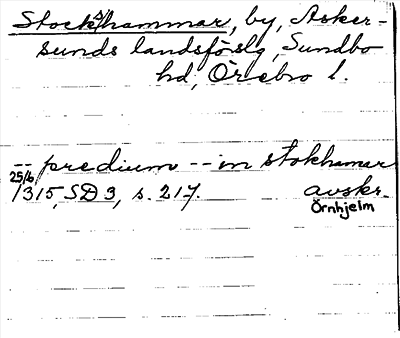 Stockshammar, by, Asker-
sunds landsförslg, Sundbo
hd, Örebro l.
-- predium -- in stokhamar
25/6
1315, SD 3, s. 217. avskr.
Örnhjelm